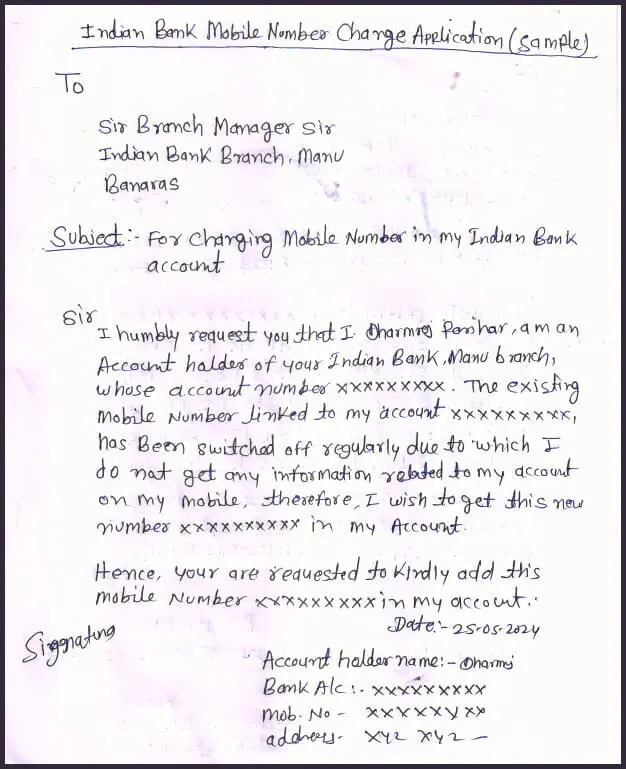 Indian Bank Mobile Number Change Application (Sample)
To
Sir Branch Manager Sir
Indian Bank Branch, Manu
Banaras
Subject:- For Changing Mobile Number in my Indian Bank
account
Sir
I humbly request you that I Dharmraj Parihar, am an
Account halder of your Indian Bank, Manu branch,
whose account number xxxxxxxxx. The existing
Mobile Number linked to my account xxxxxxxxx,
has Been switched off regularly due to which I
do not get any information related to my account
on my mobile, therefore, I wish to get this new
number xxxxxxxxxx in my Account.
Hence, your are requested to kindly add this
mobile Number xxxxxxxxx in my account.
Date:- 25-05-2024
Siggnating
Account halder name:- Dharmj
Bank A/c:- xxxxxxxxx
Mob. No - xxxxxyxx
address- xyz xyz -